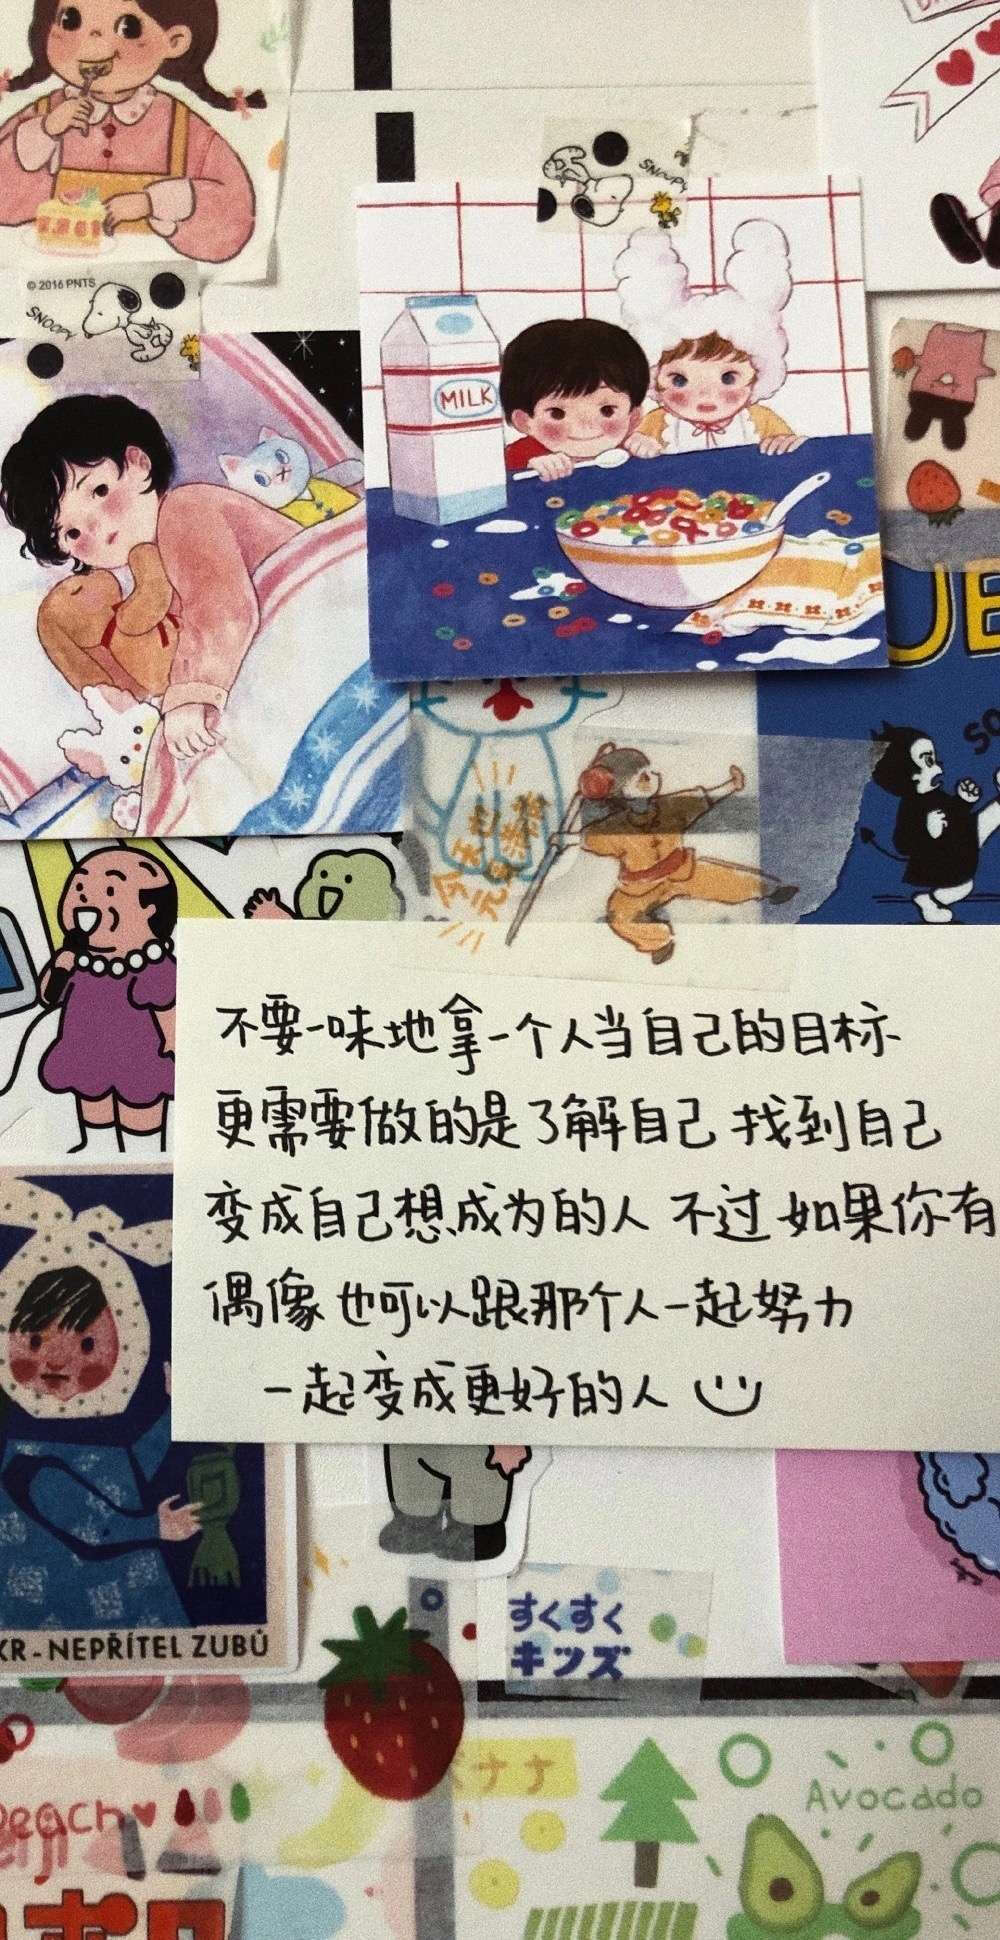 © 2016 PNTS
SNOOPY
SNOOPY
MILK
不要一味地拿一个人当自己的目标
更需要做的是了解自己 找到自己
变成自己想成为的人 不过 如果你有
偶像 也可以跟那个人一起努力
一起变成更好的人
KR-NEPŘÍTEL ZUBŮ
すくすく
キッズ
Peach
ナナ
Avocado